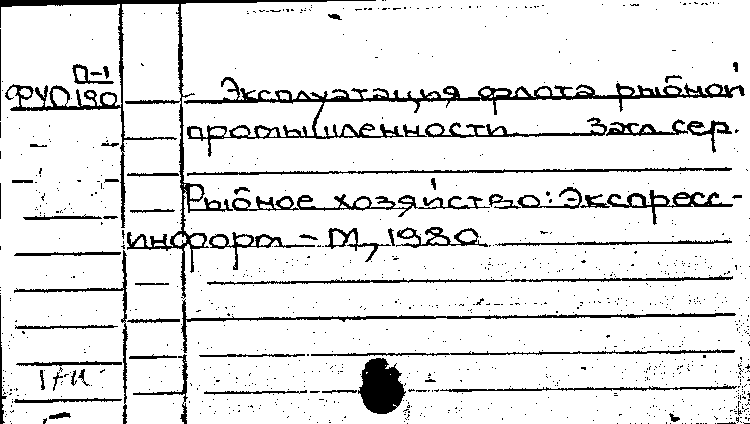 П-1
ФУО190 Эксплуатация флота рыбной
промышленности Загл. сер.
Рыбное хозяйство: Экспресс-
информ – М, 1980